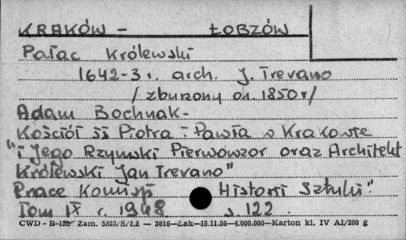 KRAKÓW - ŁOBZÓW
Pałac Królewski
1642-3 r. arch. J. Trevano
/zburzony ok. 1850 r/
Adam Bochnak -
Kościół śś Piotra i Pawła w Krakowie
"i Jego Rzymski Pierwowzór oraz Architekt
Królewski Jan Trevano"
Prace Komisji Historii Sztuki"
Tom IX r. 1948 s. 122
CWD - B-15b Zam. 5823/S/Łż - 3616-Zak-15.11.50-4.000.000-Karton kl. IV A1/200 g